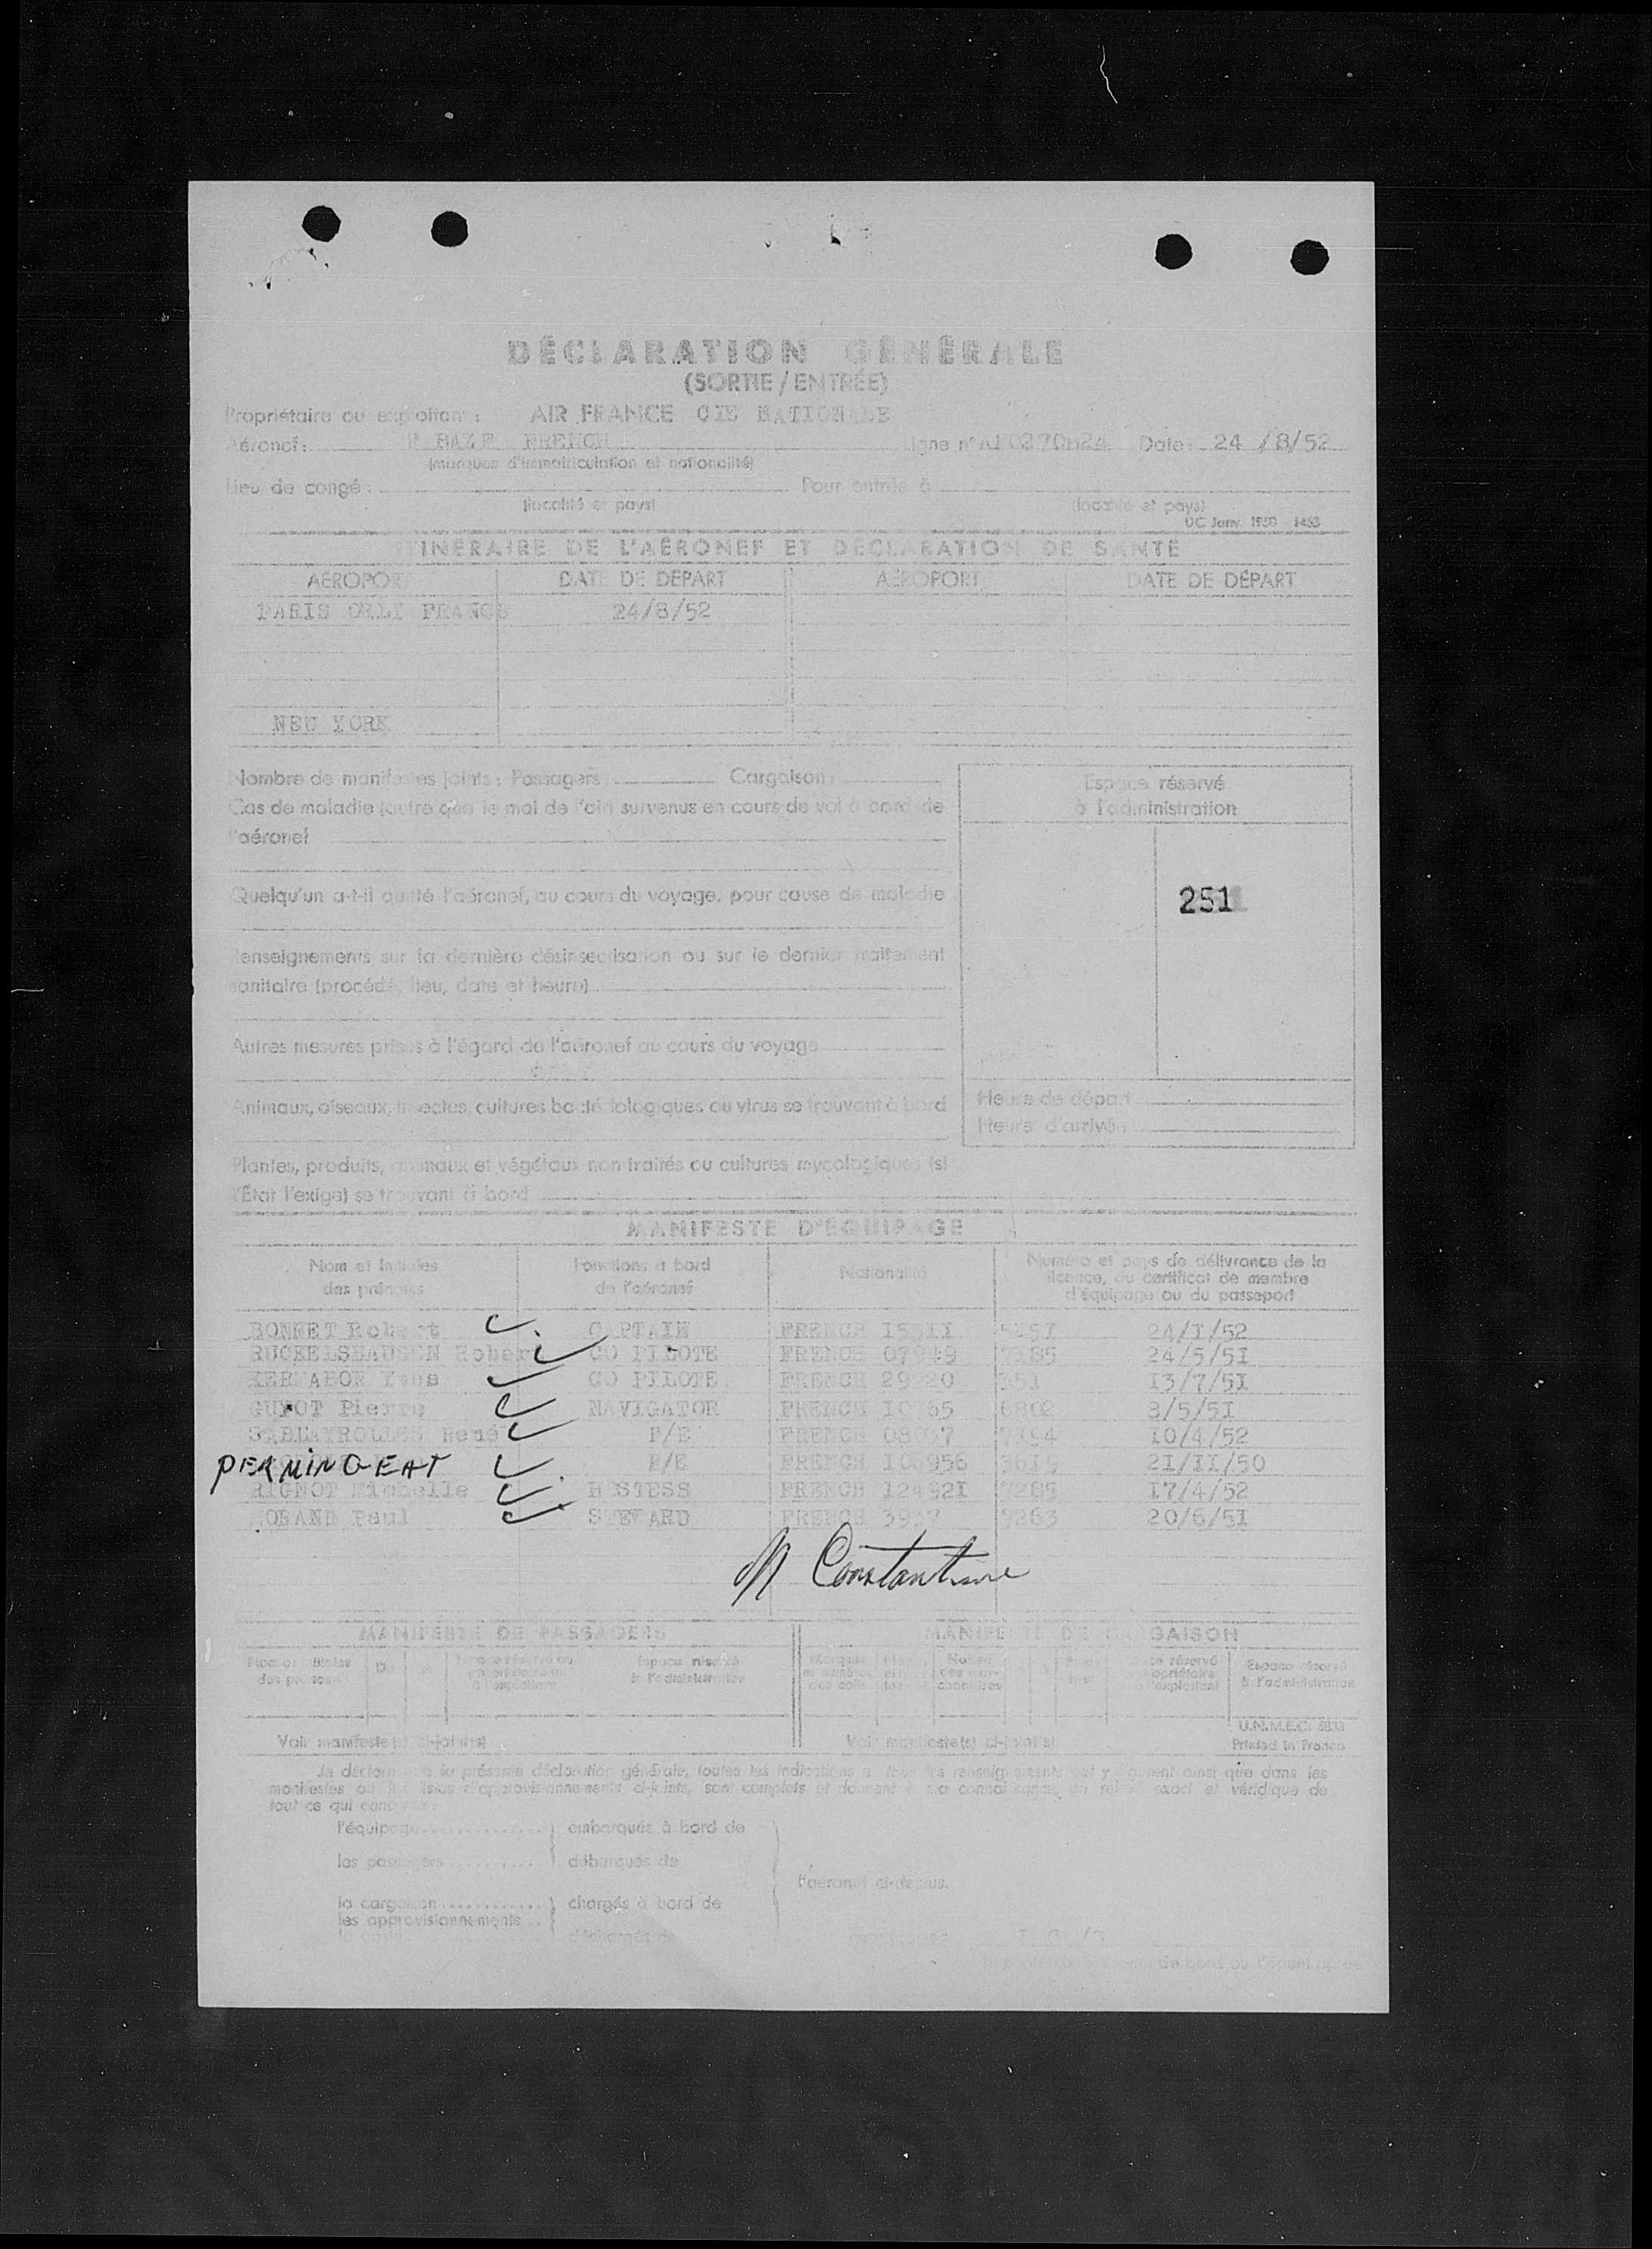 DÉCLARATION GÉNÉRALE
(SORTIE / ENTRÉE)
Propriétaire ou exploitant : AIR FRANCE CIE NATIONALE
Aéronef : F BAZE FRENCH Ligne n° Date : 24 /8/52
(marques d'immatriculation et nationalité)
Lieu de congé : Pour entrée à
(localité et pays) (localité et pays)
DC Janv. 1950 - 1453
ITINÉRAIRE DE L'AÉRONEF ET DÉCLARATION DE SANTÉ
AÉROPORT DATE DE DÉPART AÉROPORT DATE DE DÉPART
PARIS ORLY FRANCE 24/8/52
NEW YORK
Nombre de manifestes joints : Passagers Cargaison
Espace réservé
à l'administration
Cas de maladie (autre que le mal de l'air) survenus en cours de vol à bord de
l'aéronef
Quelqu'un a-t-il quitté l'aéronef, au cours du voyage, pour cause de maladie
251
Renseignements sur la dernière désinsectisation ou sur le dernier traitement
sanitaire (procédé, lieu, date et heure)
Autres mesures prises à l'égard de l'aéronef au cours du voyage
Animaux, oiseaux, insectes, cultures bactériologiques ou virus se trouvant à bord
Heure de départ
Heure d'arrivée
Plantes, produits, animaux et végétaux non traités ou cultures mycologiques (si
l'État l'exige) se trouvant à bord
MANIFESTE D'ÉQUIPAGE
Nom et initiales des prénoms
Fonctions à bord de l'aéronef
Nationalité
Numéro et pays de délivrance de la licence, du certificat de membre d'équipage ou du passeport
BONNET Robert CAPTAIN FRENCH 24/I/52
RUCKELSHAUSEN Robert CO PILOTE FRENCH 24/5/5I
Yves CO PILOTE FRENCH 13/7/5I
GUYOT Pierre NAVIGATOR FRENCH 6802 8/5/5I
SABLAYROLLES René F/E FRENCH 10/4/52
PERMINGEAT F/E FRENCH 21/II/50
RIGNOT Michelle HOSTESS FRENCH 124921 17/4/52
Paul STEWARD FRENCH 20/6/5I
M Constantine
MANIFESTE DE PASSAGERS MANIFESTE DE CARGAISON
Espace réservé à l'administration
Espace réservé à l'administration
U.N.M.E.C.
Printed in France
Voir manifeste(s) ci-joint(s) Voir manifeste(s) ci-joint(s)
Je déclare que la présente déclaration générale, toutes les indications et tous les renseignements qui y figurent ainsi que dans les
manifestes ou les listes d'approvisionnements ci-joints, sont complets et donnent à ma connaissance, un relevé exact et véridique de
tout ce qui concerne :
l'équipage embarqués à bord de
les passagers débarqués de
l'aéronef ci-dessus.
la cargaison chargés à bord de
les approvisionnements
la poste déchargés de